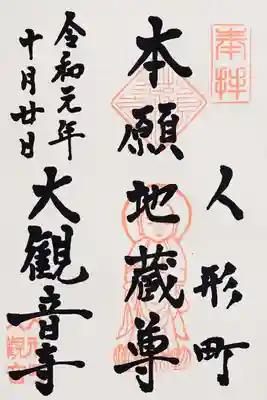 奉拝
人形町
本願地蔵尊
大観音寺
令和元年
十月廿日